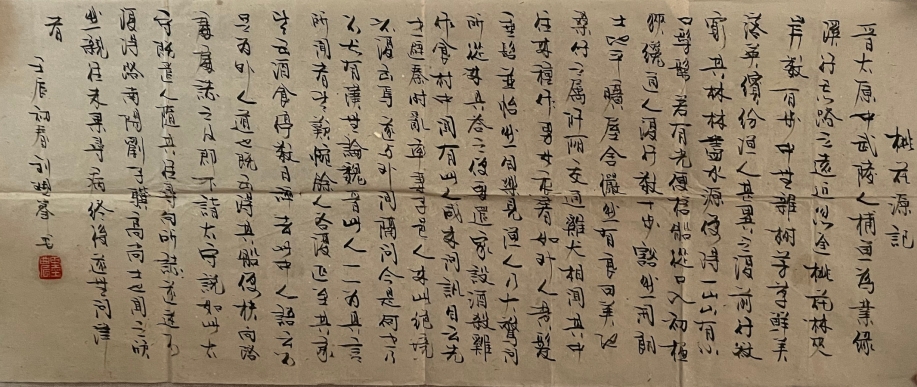 桃花源记
晋太原中武陵人捕鱼为业缘
溪行忘路之远近忽逢桃花林夾
岸数百步中无雜樹芳草鲜美
落英缤纷渔人甚異之復前行欲
窮其林林盡水源便得一山有小
口髣髴若有光便捨船從口入初極
狹纔通人復行数十步豁然開朗
土地平曠屋舍儼然有良田美池
桑竹之属阡陌交通雞犬相聞其中
往来種作男女衣着如外人黄髮
垂髫並怡然自樂見渔人乃大驚问
所從来具答之便要還家設酒殺雞
作食村中聞有此人咸来问訊自云先
世避秦时亂率妻子邑人来此绝境
不復出焉遂与外人间隔问今是何世乃
不知有漢无論魏晋此人一一为具言
所闻皆歎惋餘人各復延至其家
皆出酒食停数日辞去此中人語云不
足为外人道也既出得其船便扶向路
處處誌之及郡下詣太守説如此太
守即遣人隨其往尋向所誌遂迷不
復得路南陽劉子驥高尚士也闻之欣
然親往未果尋病终後遂无问津
者